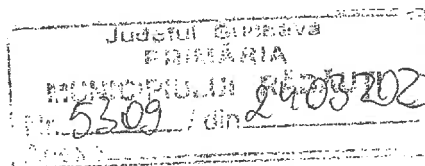 Județul Suceava
PRIMĂRIA
MUNICIPIULUI RĂDĂUȚI
Nr. 5309 / din 24.03.202